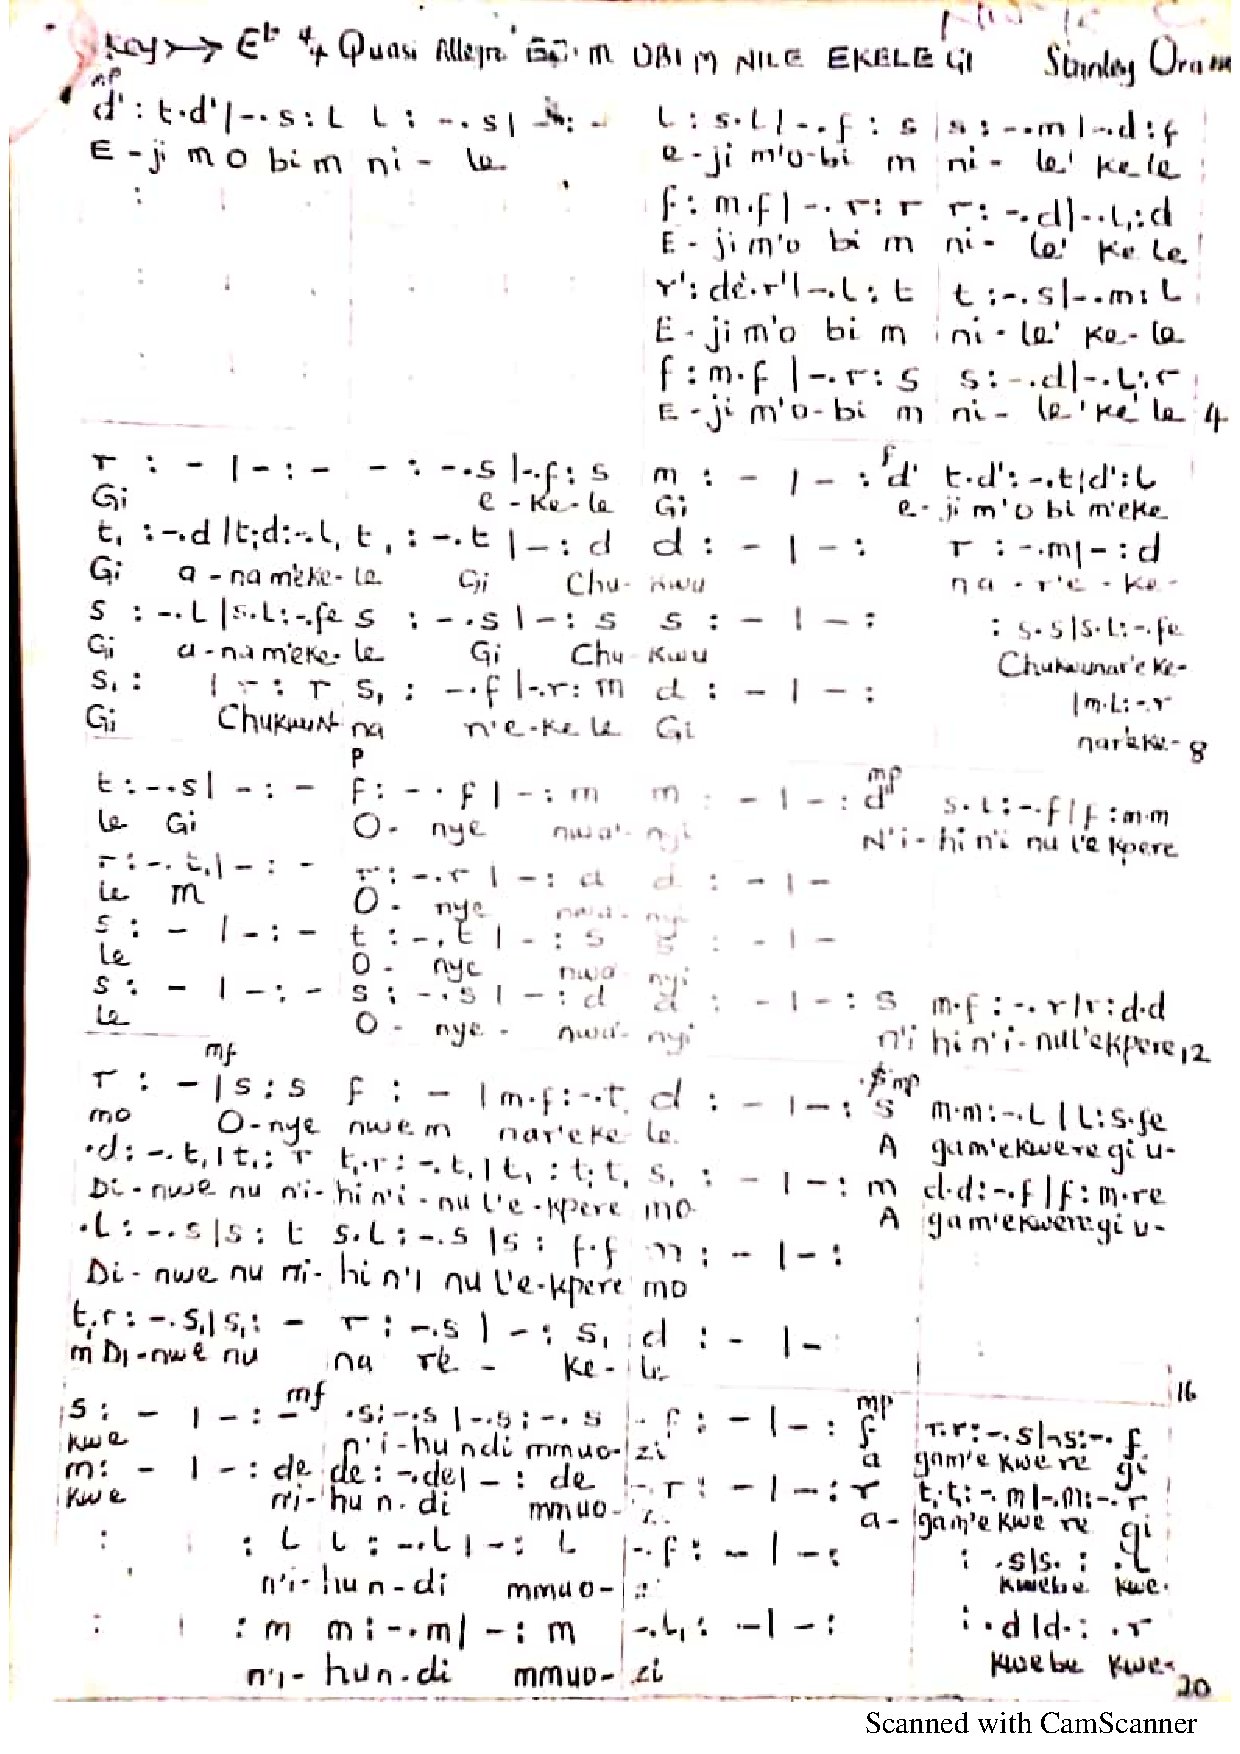 Key >→ Eb 4/4 Quasi Allegro EJI M OBI M NILE EKELE GI Stanley
mp
d' : t.d'|-. s : L L : -. s| - : - L : s.L|-. f : s s : -.m|-.d : f
E - ji m o bi m ni - le e - ji m'o-bi m ni - le' ke le
f : m.f|-. r : r r : -.d|-.L, : d
E - ji m'o bi m ni - le' ke le
r' : de'.r'|-.L : t t : -.s|-.m : L
E - ji m'o bi m ni - le' ke - le
f : m.f|-.r : s s : -.d|-.L : r
E - ji m'o - bi m ni - le' ke' le 4
r : - | - : - - : -.s|-.f : s m : - | - : f d' t.d' : -.t|d' : L
Gi e - ke - le Gi e - ji m'o bi m'eke
t, : -.d |t,;d : -.L, t, : -.t | - : d d : - | - : r : -.m| - : d
Gi a - na m'eke - le Gi Chu - kwu n a - r'e - ke -
s : -.L |s.L : -.fe s : -.s | - : s s : - | - : : s.s|s.L : -.fe
Gi a - na m'eke - le Gi Chu - kwu Chukwunar'e ke -
s, : | - : r s, : -.f |-.r : m d : - | - : |m.L : -.r
Gi Chukwu na n'e - ke le Gi nar'eke - 8
p
t : -.s| - : - f : -.f | - : m m : - | - : mp d' s.L : -.f|f : m.m
le Gi O - nye nwa' - nyi N'i - hi n'i nu l'e kpere
r : -.t,| - : - r : -.r | - : d d : - | -
le m O - nye nwa - nyi
s : - | - : - t : -.t | - : s s : - | -
le O - nye nwa nyi
s : - | - : - s : -.s | - : d d : - | - : s m.f : -.r|r : d.d
le O - nye - nwa' - nyi n'i hi n'i - nu l'ekpere 12
mf
r : - |s : s f : - |m.f : -.t, d : - | - : mp s m.m : -.L|L : s.fe
mo O - nye nwe m nar'eke - le. A gam'ekwere gi u -
.d : -.t,|t, : r t,.r : -.t,|t, : t,.t, s, : - | - : m d.d : -.f|f : m.re
Di - nwe nu n'i - hi n'i - nu l'e - kpere mo A gam'ekwere gi u -
.L : -.s|s : t s.L : -.s |s : f.f m : - | - :
Di - nwe nu n'i - hi n'i nu l'e - kpere mo
t,.r : -.s,|s, : - r : -.s | - : s, d : - | -
m Di - nwe nu na re' - ke - le
16
s : - | - : - mf .s : -.s |-.s : -.s -.f : - | - : mp f r.r : -.s|-.s : -.f
kwe n'i - hu ndi mmuo - zi a gam'e kwe re gi
m : - | - : de de : -.de| - : de -.r : - | - : r t,.t, : -.m|-.m : -.r
kwe n'i - hu n - di mmuo - a - gam'e kwe re gi
: : L L : -.L| - : L -.f : - | - : : .s|s. : .L
n'i - hu n - di mmuo - kwebe kwe -
: : m m : -.m| - : m -.L, : - | - : : .d|d. : .r
n'i - hu n - di mmuo - zi kwebe kwe -
20
Scanned with CamScanner